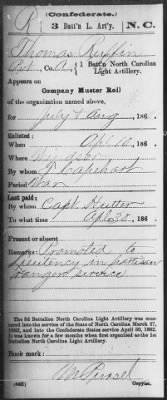 (Confederate.)
R 3 Batt'n L. Art'y. N.C.
Thomas Ruffin
Pvt, Co. A, 1 Batt'n North Carolina
Light Artillery.
Appears on
Company Muster Roll
of the organization named above,
for July & Aug, 186
Enlisted:
When Apl 10, 186
Where
By whom T Capehart
Period War
Last paid:
By whom Capt Sutton
To what time Apl 30, 186
Present or absent
Remarks: Promoted to
in partizan
ranger service
The 3d Battalion North Carolina Light Artillery was mustered
into the service of the State of North Carolina March 27,
1862, and into the Confederate States service April 30, 1862.
It was known for a few months when first organized as the 1st
Battalion North Carolina Light Artillery.
Book mark:
(642) Copyist.